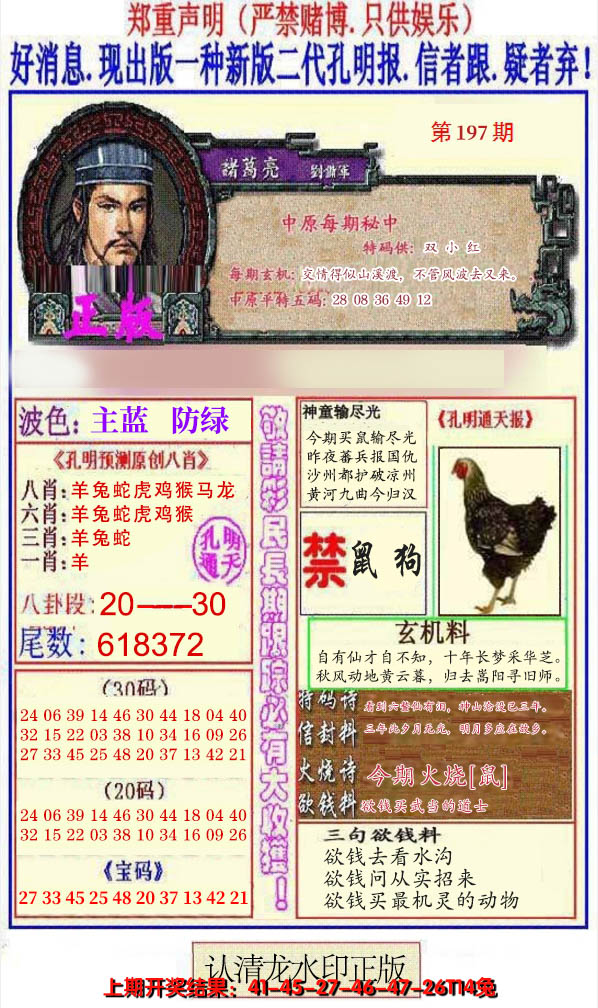 郑重声明（严禁赌博.只供娱乐）
好消息.现出版一种新版二代孔明报.信者跟.疑者弃！
第197期
諸葛亮
中原每期秘中
特码供：双小红
每期玄机：交情得似山溪渡，不管风波去又来。
中原平特五码：28 08 36 49 12
正版
波色：主蓝 防绿
《孔明预测原创八肖》
八肖：羊兔蛇虎鸡猴马龙
六肖：羊兔蛇虎鸡猴
三肖：羊兔蛇
一肖：羊
孔明
通天
八卦段：20----30
尾数：618372
（30码）
24 06 39 14 46 30 44 18 04 40
32 15 22 03 38 10 34 16 09 26
27 33 45 25 48 20 37 13 42 21
（20码）
24 06 39 14 46 30 44 18 04 40
32 15 22 03 38 10 34 16 09 26
《宝码》
27 33 45 25 48 20 37 13 42 21
敬請彩民長期跟踪必有大收獲！
神童输尽光
今期买鼠输尽光
昨夜蕃兵报国仇
沙州都护破凉州
黄河九曲今归汉
《孔明通天报》
禁鼠 狗
玄机料
自有仙才自不知，十年长梦采华芝。
秋风动地黄云暮，归去嵩阳寻旧师。
特码诗
看到六鳌仙有泪，神山沦没已三年。
信封料
三年此夕月无光，明月多应在故乡。
火烧诗
今期火烧[鼠]
欲钱料
欲钱买武当的道士
三句欲钱料
欲钱去看水沟
欲钱问从实招来
欲钱买最机灵的动物
认清龙水印正版
上期开奖结果：41-45-27-46-47-26T14兔